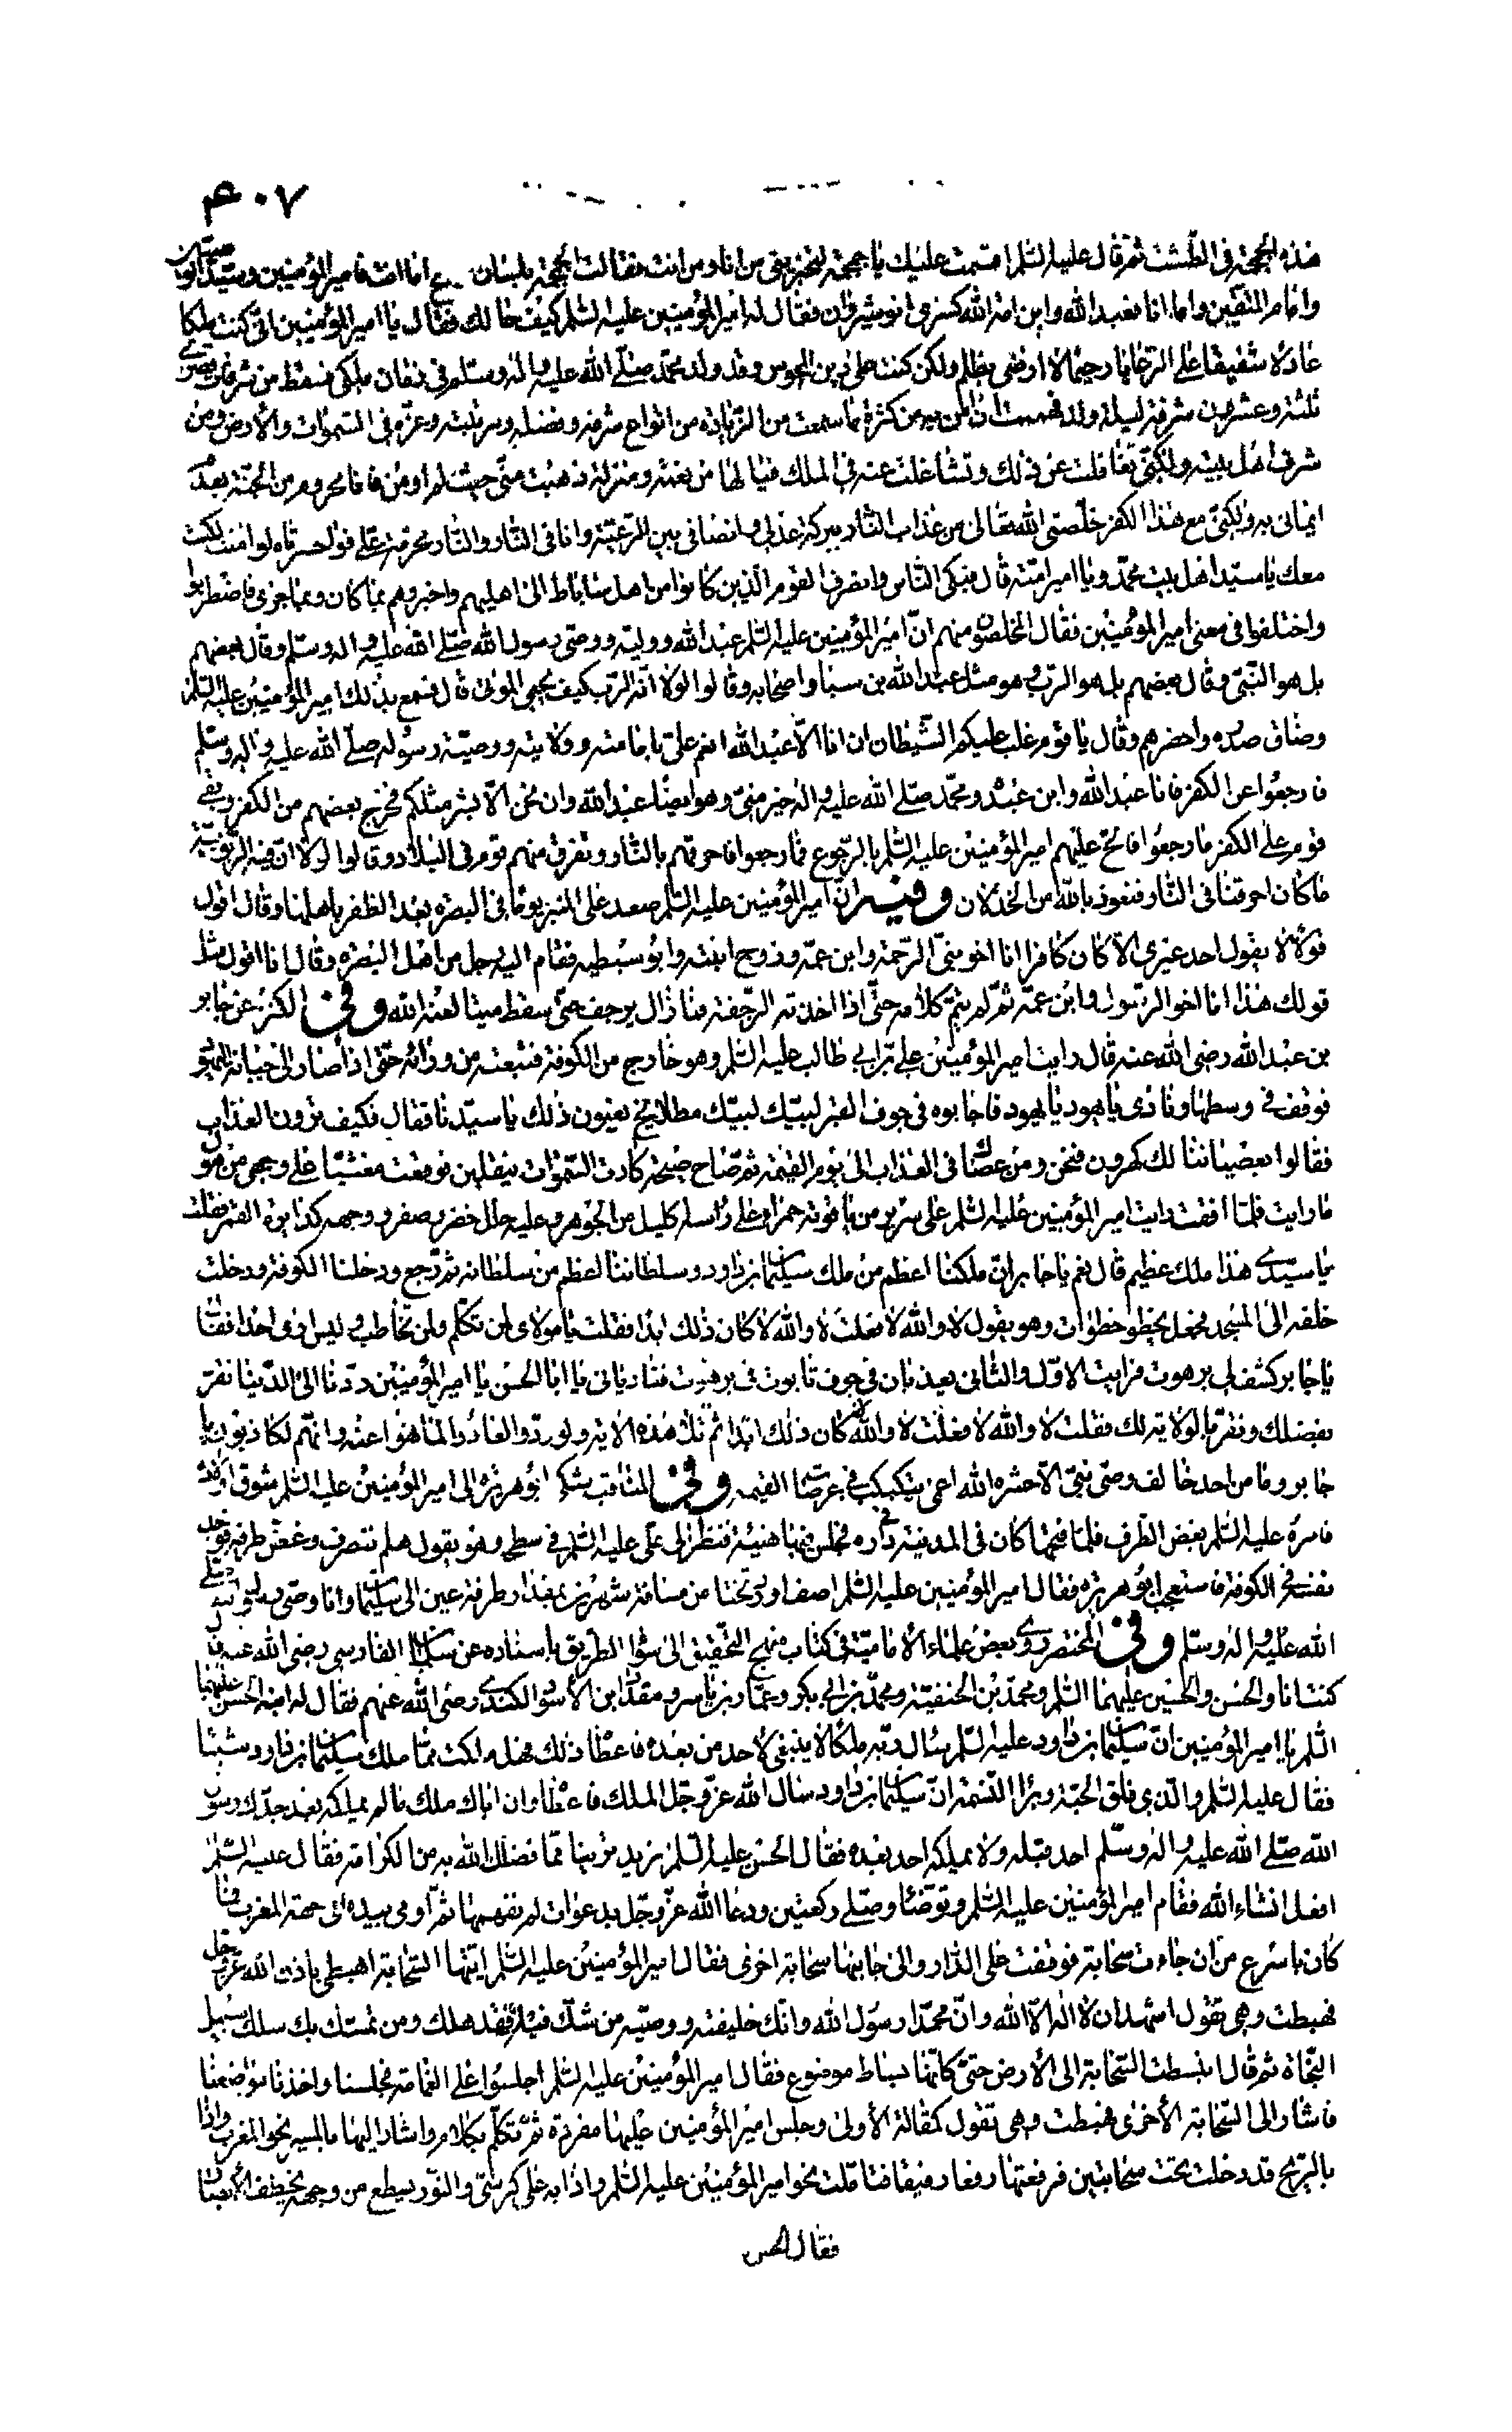 ٤٠٧
هذه الجمجمة في الطشت ثم قال عليه السلم اقسمت عليك يا جمجمة لتخبريني من انا ومن انت فقالت الجمجمة بلسان فصيح اما انت فامير المؤمنين وسيد الوصيين
وامام المتقين واما انا فعبد الله وابن امة الله كسرى انوشيروان فقال له امير المؤمنين عليه السلم كيف حالك فقال يا امير المؤمنين اني كنت ملكا
عادلا شفيقا على الرعايا رحيما لا ارضى بظلم ولكن كنت على دين المجوس وقد ولد محمد صلى الله عليه واله وسلم في زمان ملكي فسقط من شرفات قصري
ثلثة وعشرون شرفة ليلة ولد فهممت ان اومن به من كثرة ما سمعت من الزيادة من انواع شرفه وفضله ومرتبته وعزه في السموات والأرض ومن
شرف اهل بيته ولكني تغافلت عن ذلك وتشاغلت عنه في الملك فيا لها من نعمة ومنزلة ذهبت مني حيث لم اومن فانا محروم من الجنة بعدم
ايماني به ولكني مع هذا الكفر خلصني الله تعالى من عذاب النار ببركة عدلي وانصافي بين الرعية وانا في النار والنار محرمة علي فوا حسرتاه لو امنت لكنت
معك يا سيد اهل بيت محمد ويا امير امته قال فبكى الناس وانصرف القوم الذين كانوا من اهل ساباط الى اهليهم واخبروهم بما كان وبما جرى فاضطربوا
واختلفوا في معنى امير المؤمنين فقال المخلصون منهم ان امير المؤمنين عليه السلم عبد الله ووليه ووصي رسول الله صلى الله عليه واله وسلم وقال بعضهم
بل هو النبي وقال بعضهم بل هو الرب وهو مثل عبد الله بن سبا واصحابه وقالوا لولا انه الرب كيف يحيي الموتى قال فسمع بذلك امير المؤمنين عليه السلم
وضاق صدره واحضرهم وقال يا قوم غلب عليكم الشيطان ان انا الا عبد الله انعم علي بامامته وولايته ووصية رسوله صلى الله عليه واله وسلم
فارجعوا عن الكفر فانا عبد الله وابن عبده ومحمد صلى الله عليه واله خير مني وهو ايضا عبد الله وان نحن الا بشر مثلكم فخرج بعضهم من الكفر وبقي
قوم على الكفر ما رجعوا فالح عليهم امير المؤمنين عليه السلم بالرجوع فما رجعوا فاحرقهم بالنار وتفرق منهم قوم في البلاد وقالوا لولا ان فيه الربوبية
ما كان احرقنا في النار فنعوذ بالله من الخذلان وفيه ان امير المؤمنين عليه السلم صعد على المنبر يوما في البصرة بعد الظفر باهلها وقال اقول
قولا لا يقول احد غيري الا كان كافرا انا اخو نبي الرحمة وابن عمه وزوج ابنته وابو سبطيه فقام اليه رجل من اهل البصرة وقال انا اقول مثل
قولك هذا انا اخو الرسول وابن عمه ثم لم يتم كلامه حتى اذا اخذته الرجفة فما زال يرجف حتى سقط ميتا لعنه الله وفي الكنز عن جابر
بن عبد الله رضى الله عنه قال رايت امير المؤمنين علي بن ابي طالب عليه السلم وهو خارج من الكوفة فتبعته من ورائه حتى اذا صار الى جبانة اليهود
فوقف في وسطها ونادى يا يهود يا يهود فاجابوه في جوف القبر لبيك لبيك مطلايخ يعنون ذلك يا سيدنا فقال فكيف ترون العذاب
فقالوا بعصياننا لك كهرون فنحن ومن عصاك في العذاب الى يوم القيمة ثم صاح صيحة كادت السموات ينفطرن فوقعت مغشيا على وجهي من هول
ما رايت فلما افقت رايت امير المؤمنين عليه السلم على سرير من ياقوتة حمراء على راسه اكليل من الجوهر وعليه حلل خضر وصفر ووجهه كدائرة القمر فقلت
يا سيدي هذا ملك عظيم قال نعم يا جابر ان ملكنا اعظم من ملك سليمان بن داود وسلطاننا اعظم من سلطانه ثم رجع ودخلنا الكوفة ودخلت
خلفه الى المسجد فجعل يخطو خطوات وهو يقول لا والله لا فعلت لا والله لا كان ذلك ابدا فقلت يا مولاي لمن تكلم ولمن تخاطب وليس ارى احدا فقال
يا جابر كشف لي برهوت فرايت الاول والثاني يعذبان في جوف تابوت في برهوت فنادياني يا ابا الحسن يا امير المؤمنين ردنا الى الدنيا نقر
بفضلك ونقر بالولاية لك فقلت لا والله لا فعلت لا والله لا كان ذلك ابدا ثم تلا هذه الاية ولو ردوا لعادوا لما نهوا عنه وانهم لكاذبون يا
جابر وما من احد خالف وصي نبي الا حشره الله اعمى يتكبكب في عرصات القيمة وفي المناقب شكى ابو هريرة الى امير المؤمنين عليه السلم شوق اولاده
فامره عليه السلم بغض الطرف فلما فتحها كان في المدينة في داره فجلس فيها هنيئة فنظر الى علي عليه السلم في سطحه وهو يقول هلم ننصرف وغض طرفه فوجد
نفسه في الكوفة فاستعجب ابو هريرة فقال امير المؤمنين عليه السلم ان اصف اورد تختا من مسافة شهرين بمقدار طرفة عين الى سليمان وانا وصي رسول الله صلى
الله عليه واله وسلم وفي المختصر روى بعض علماء الامامية في كتاب منهج التحقيق الى سواء الطريق باسناده عن سلمان الفارسي رضى الله عنه قال
كنت انا والحسن والحسين عليهما السلم ومحمد بن الحنفية ومحمد بن ابي بكر وعمار بن ياسر ومقداد ابن الأسود الكندي رضى الله عنهم فقال له ابنه الحسن عليهما
السلم يا امير المؤمنين ان سليمان بن داود عليه السلم سال ربه ملكا لا ينبغي لأحد من بعده فاعطاه ذلك فهل ملكت مما ملك سليمان بن داود شيئا
فقال عليه السلم والذي فلق الحبة وبرا النسمة ان سليمان بن داود سال الله عز وجل الملك فاعطاه وان اباك ملك ما لم يملكه بعد جدك رسول
الله صلى الله عليه واله وسلم احد قبله ولا يملكه احد بعده فقال الحسن عليه السلم نريد ترينا مما فضلك الله به من الكرامة فقال عليه السلم
افعل انشاء الله فقام امير المؤمنين عليه السلم وتوضا وصلى ركعتين ودعا الله عز وجل بدعوات لم نفهمها ثم اومى بيده الى جهة المغرب فما
كان باسرع من ان جاءت سحابة فوقفت على الدار والى جانبها سحابة اخرى فقال امير المؤمنين عليه السلم ايتها السحابة اهبطي باذن الله عز وجل
فهبطت وهي تقول اشهد ان لا اله الا الله وان محمدا رسول الله وانك خليفته ووصيه من شك فيك فقد هلك ومن تمسك بك سلك سبيل
النجاة ثم قال انبسطت السحابة الى الأرض حتى كانها بساط موضوع فقال امير المؤمنين عليه السلم اجلسوا على الغمامة فجلسنا واخذنا مواضعنا
فاشار الى السحابة الأخرى فهبطت وهي تقول كمقالة الأولى وجلس امير المؤمنين عليها مفردة ثم تكلم بكلام واشار اليها بالمسير نحو المغرب واذا
بالريح قد دخلت تحت سحابتين فرفعتها رفعا رفيقا فتاملت نحو امير المؤمنين عليه السلم واذا به على كرسي والنور يسطع من وجهه يخطف الأبصار
فقال الحسن